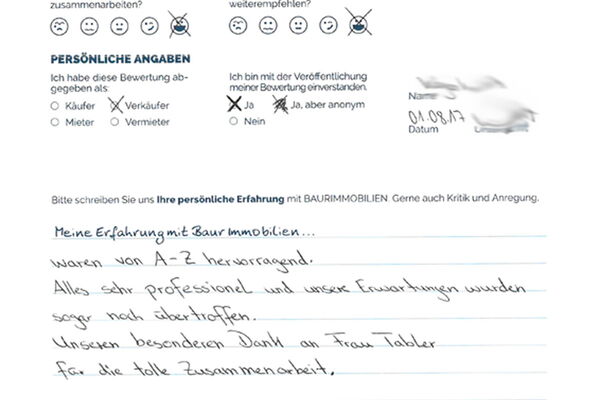 zusammenarbeiten?
weiterempfehlen?
PERSÖNLICHE ANGABEN
Ich habe diese Bewertung ab-
gegeben als:
Käufer Verkäufer
Mieter Vermieter
Ich bin mit der Veröffentlichung
meiner Bewertung einverstanden.
Ja Ja, aber anonym
Nein
Name
01.08.17
Datum
Bitte schreiben Sie uns Ihre persönliche Erfahrung mit BAURIMMOBILIEN. Gerne auch Kritik und Anregung.
Meine Erfahrung mit Baur Immobilien...
waren von A-Z hervorragend.
Alles sehr professionel und unsere Erwartungen wurden
sogar noch übertroffen.
Unseren besonderen Dank an Frau Tabler
für die tolle Zusammenarbeit.